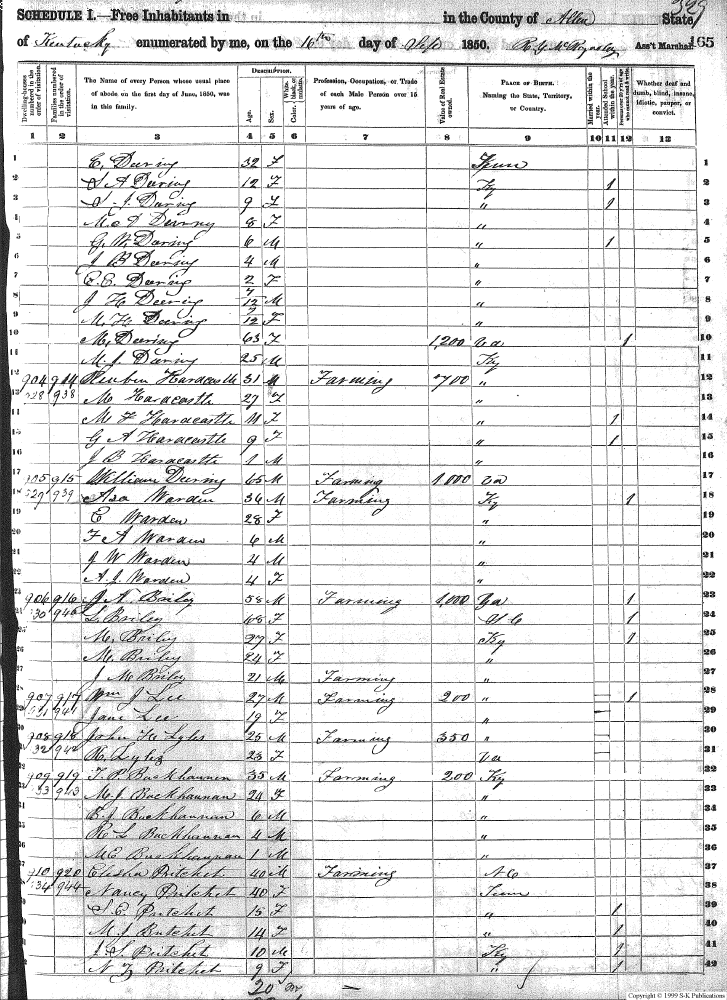 329
SCHEDULE I.—Free Inhabitants in in the County of Allen State
of Kentucky enumerated by me, on the 16th day of Sept 1850. Ass't Marshal 165
Dwelling-houses numbered in the order of visitation.
Families numbered in the order of visitation.
The Name of every Person whose usual place of abode on the first day of June, 1850, was in this family.
Description.
Age.
Sex.
Color, White, black, or mulatto.
Profession, Occupation, or Trade of each Male Person over 15 years of age.
Value of Real Estate owned.
Place of Birth. Naming the State, Territory, or Country.
Married within the year.
Attended School within the year.
Persons over 20 y'rs of age who cannot read & write.
Whether deaf and dumb, blind, insane, idiotic, pauper, or convict.
1 2 3 4 5 6 7 8 9 10 11 12 13
1 E. Dering 32 F Tenn 1
2 S A Dering 12 F Ky 1 2
3 S. J. Dering 9 F " 1 3
4 8 F " 4
5 G. W. Dering 6 M " 1 5
6 J B Dering 4 M " 6
7 E. E. Dering 2 F " 7
8 J H Deering 7/12 M " 8
9 M. H. Dering 7/12 F " 9
10 M. Dering 63 F 1,200 Va 1 10
11 M J Dering 25 M Ky 11
12 904 914 Reuben Hardcastle 31 M Farming 700 " 12
13 928 938 M Hardcastle 27 F " 13
14 M F Hardcastle 11 F " 1 14
15 G A Hardcastle 9 F " 1 15
16 J B Hardcastle 1 M " 16
17 905 915 William Dering 65 M Farming 1,000 Va 17
18 929 939 Asa Warden 36 M Farming Ky 1 18
19 E Warden 28 F " 19
20 F A Warden 6 M " 20
21 J W Warden 4 M " 21
22 A. J. Warden 4 F " 22
23 906 916 J. A. Briley 58 M Farming 1,000 Va 1 23
24 930 940 L. Briley 68 F 1 24
25 M. Briley 27 F Ky 1 25
26 M. Briley 24 F " 26
27 J M Briley 21 M Farming " 27
28 907 917 Wm J Lee 27 M Farming 200 " 1 28
29 931 941 Jane Lee 19 F " 29
30 908 918 John H Lyles 25 M Farming 350 " 30
31 932 942 R. Lyles 23 F Va 31
32 909 919 T. P. Buckhannan 35 M Farming 200 Ky 32
33 933 943 M. J Buckhannan 24 F " 33
34 E. J Buckhannan 6 M " 34
35 R L Buckhannan 4 M " 35
36 M E Buckhannan 1 M " 36
37 910 920 Elisha Pritchet 40 M Farming NC 37
38 934 944 Nancy Pritchet 40 F Tenn 38
39 S. E. Pritchet 15 F " 1 39
40 M. J. Pritchet 14 F " 1 40
41 J. S. Pritchet 10 M Ky 1 41
42 N. F. Pritchet 9 F " 1 42
20
9
Copyright © 1999 S-K Publications